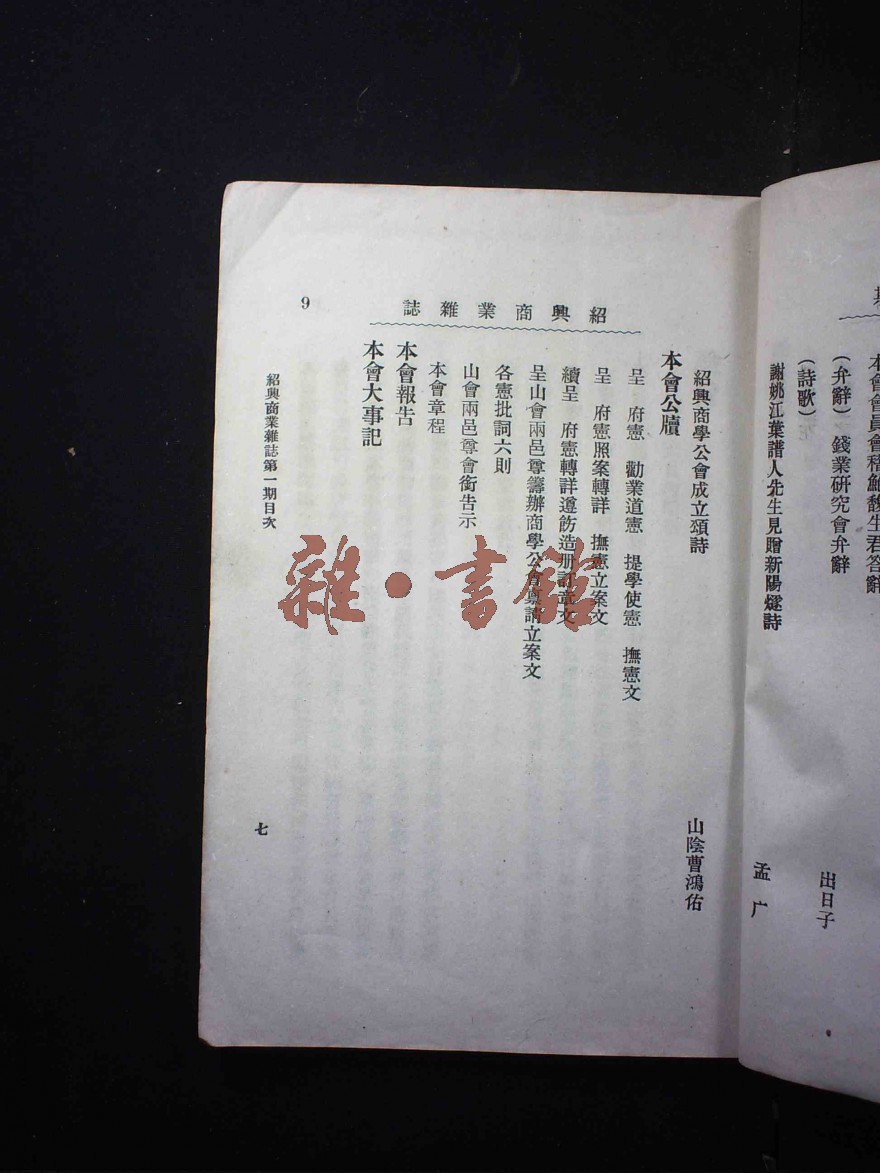 本會會員會稽鮑馥生君答辭
(弁辭) 錢業研究會弁辭
出日子
(詩歌)
謝姚江葉譜人先生見贈新陽燧詩
孟广
紹興商業雜誌
紹興商學公會成立頌詩
山陰曹鴻佑
本會公牘
呈 府憲 勸業道憲 提學使憲 撫憲文
呈 府憲照案轉詳 撫憲立案文
續呈 府憲轉詳遵飭造册文
呈山會兩邑尊籌辦商學公會稟請立案文
各憲批詞六則
山會兩邑尊會銜告示
本會章程
本會報告
本會大事記
9
紹興商業雜誌第一期目次
七
雜·書館